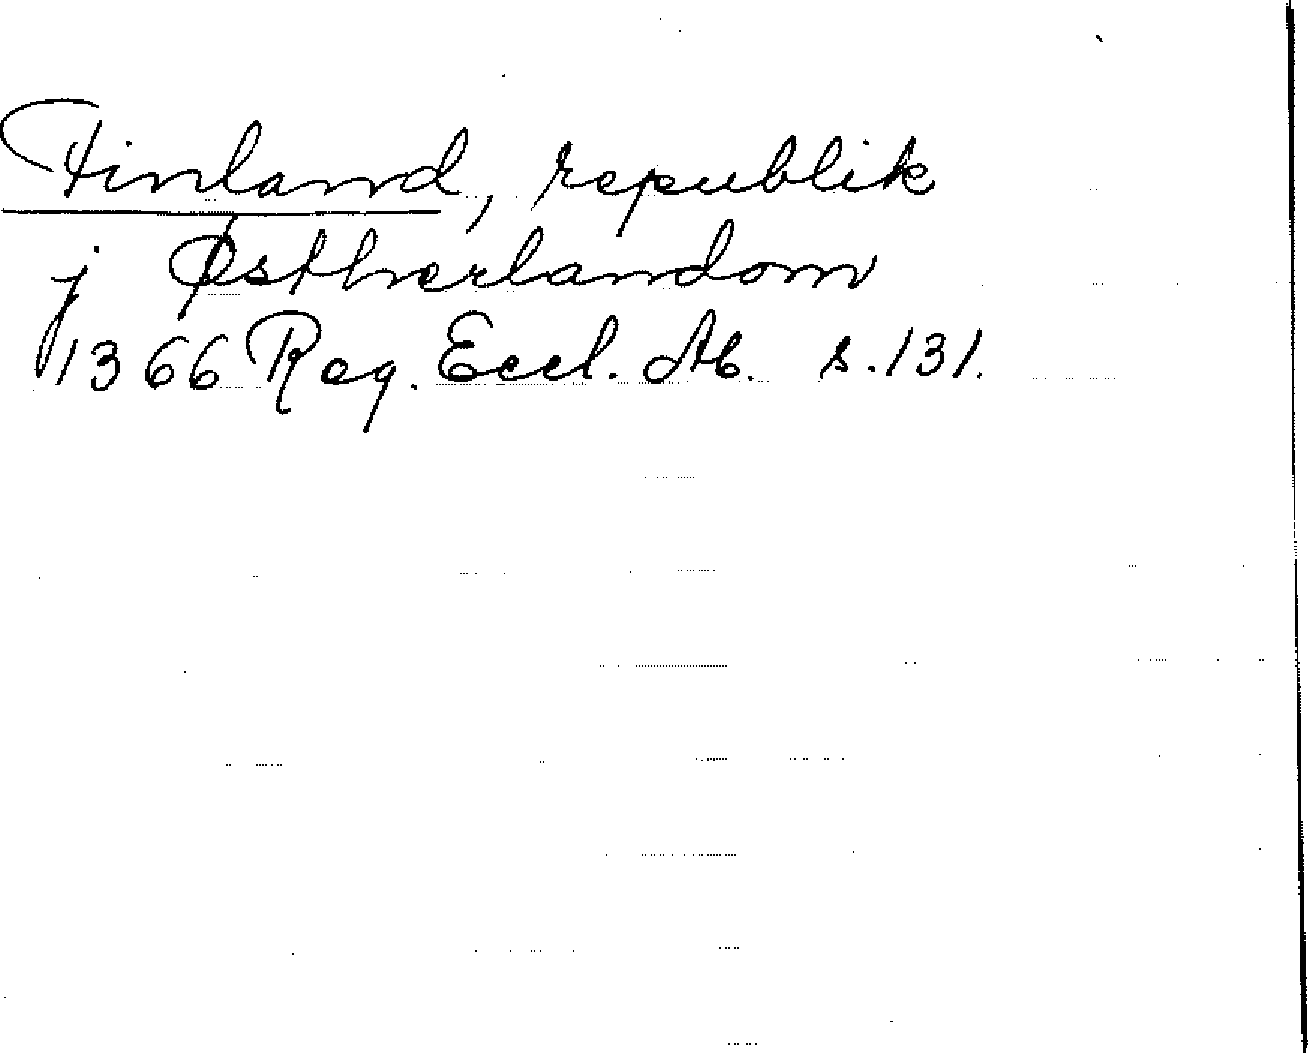 Finland, republik
j Østherlandom
1366 Reg. Eccl. Ab. s. 131.